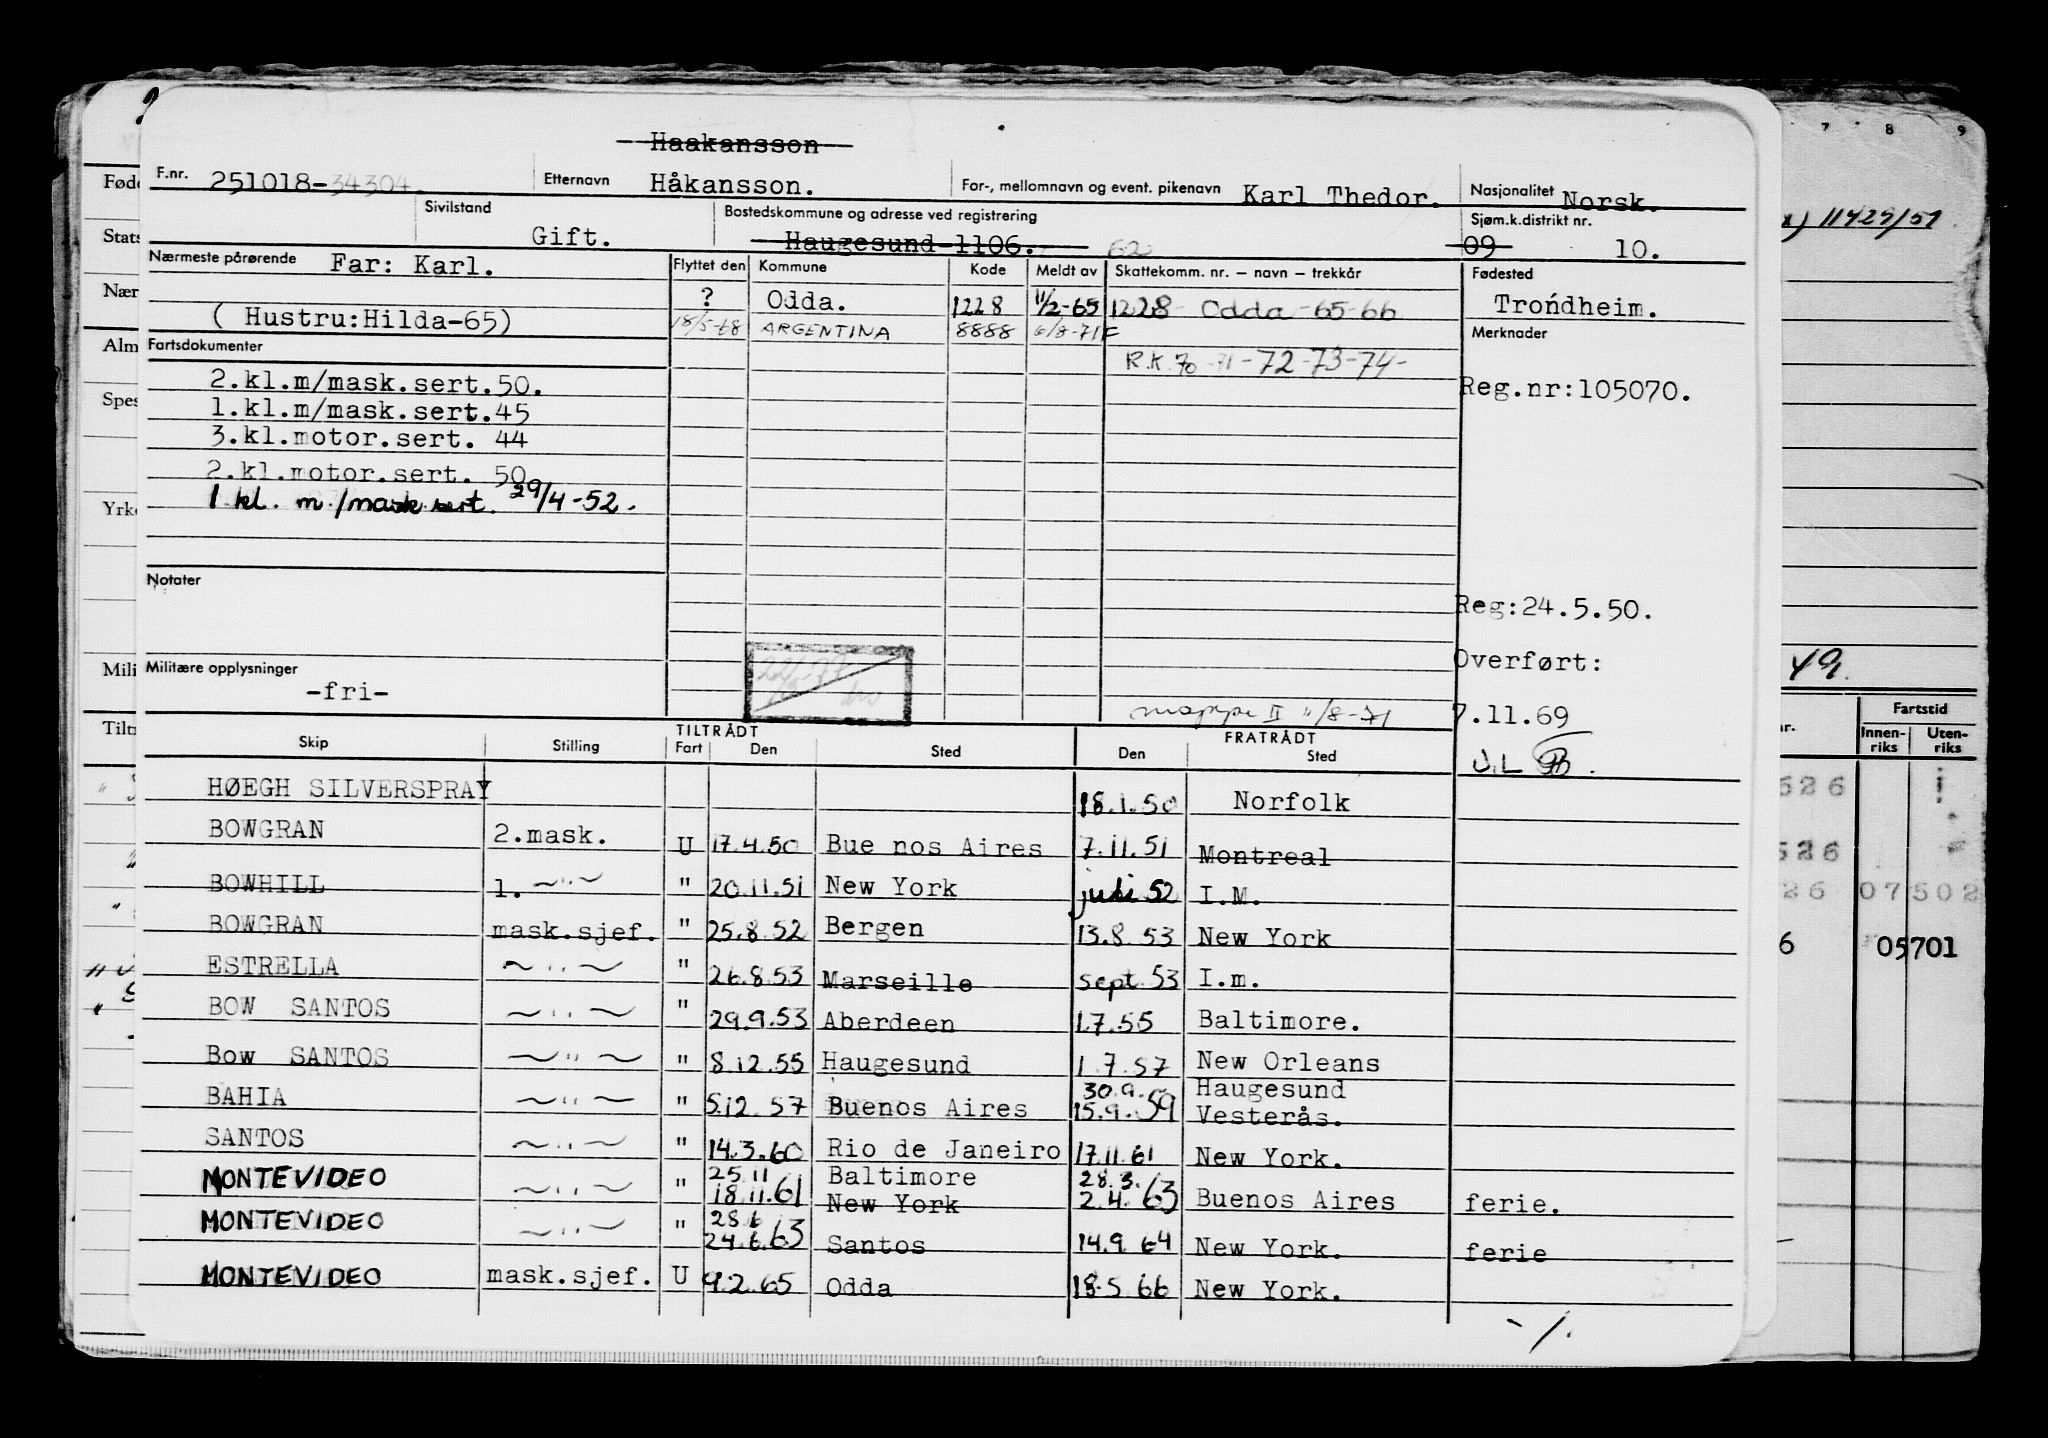 Haakansson
F.nr. 251018-34304. Etternavn Håkansson. For-, mellomnavn og event. pikenavn Karl Thedor. Nasjonalitet Norsk.
Sivilstand Gift. Bostedskommune og adresse ved registrering Haugesund 1106. 62 Sjøm.k.distrikt nr. 09 10.
Nærmeste pårørende Far: Karl. Flyttet den Kommune Kode Meldt av Skattekomm. nr. – navn – trekkår Fødested
? Odda. 1228 11/2-65 1228 Odda -65-66 Trondheim.
( Hustru:Hilda-65) 18/5-68 ARGENTINA 8888 6/8-71F Merknader
Fartsdokumenter R.K. 70-71-72-73-74-
2.kl.m/mask.sert.50. Reg.nr:105070.
1.kl.m/mask.sert.45
3.kl.motor.sert. 44
2.kl.motor.sert. 50
1 kl. m./mask sert. 29/4-52.
Notater
Reg:24.5.50.
Militære opplysninger Overført:
-fri-
mappe II 11/8-71 7.11.69
TILTRÅDT FRATRÅDT
Skip Stilling Fart Den Sted Den Sted
J.L
HØEGH SILVERSPRAY 18.1.50 Norfolk
BOWGRAN 2.mask. U 17.4.50 Bue nos Aires 7.11.51 Montreal
BOWHILL 1. ~"~ " 20.11.51 New York juli 52 I.M.
BOWGRAN mask.sjef. " 25.8.52 Bergen 13.8.53 New York
ESTRELLA ~"~ " 26.8.53 Marseille sept. 53 I.m.
BOW SANTOS ~"~ " 29.9.53 Aberdeen 1.7.55 Baltimore.
Bow SANTOS ~"~ " 8.12.55 Haugesund 1.7.57 New Orleans
30.9. Haugesund
BAHIA ~"~ " 5.12.57 Buenos Aires 15.9.59 Vesterås.
SANTOS ~"~ " 14.3.60 Rio de Janeiro 17.11.61 New York.
25.11 Baltimore 28.3.
MONTEVIDEO ~"~ " 18.11.61 New York 2.4.63 Buenos Aires ferie.
28.6
MONTEVIDEO ~"~ " 24.6.63 Santos 14.9.64 New York. ferie
MONTEVIDEO mask.sjef. U 9.2.65 Odda 18.5.66 New York.
-/.
Fød
Stats
Nær
Alm
Spes
Yrke
Mili
Tilt
7 8 9
11429/51
49.
Fartstid
Innen-riks Uten-riks
526
526
26 07502
6 05701